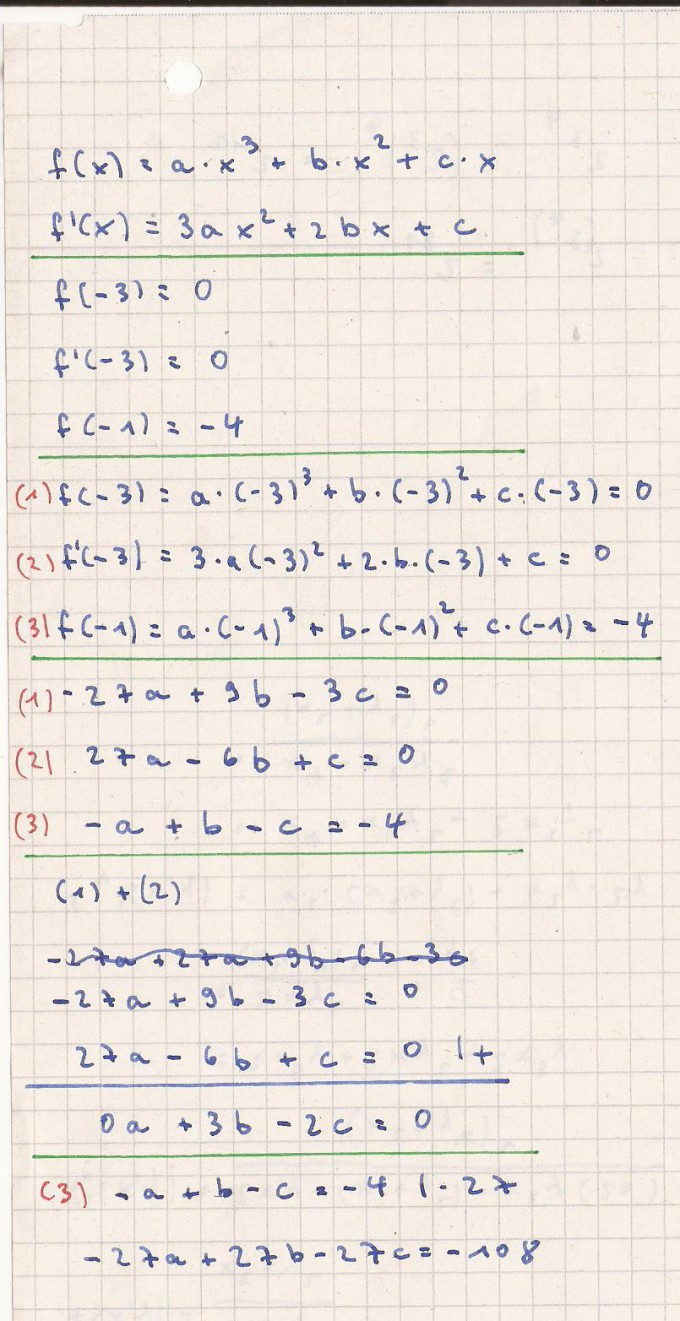 f(x) = a·x³ + b·x² + c·x
f'(x) = 3ax² + 2bx + c
f(-3) = 0
f'(-3) = 0
f(-1) = -4
(1) f(-3) = a·(-3)³ + b·(-3)² + c·(-3) = 0
(2) f'(-3) = 3·a(-3)² + 2·b·(-3) + c = 0
(3) f(-1) = a·(-1)³ + b·(-1)² + c·(-1) = -4
(1) -27a + 9b - 3c = 0
(2) 27a - 6b + c = 0
(3) -a + b - c = -4
(1) + (2)
-27a + 27a + 9b - 6b - 3c
-27a + 9b - 3c = 0
27a - 6b + c = 0 |+
0a + 3b - 2c = 0
(3) -a + b - c = -4 |·27
-27a + 27b - 27c = -108